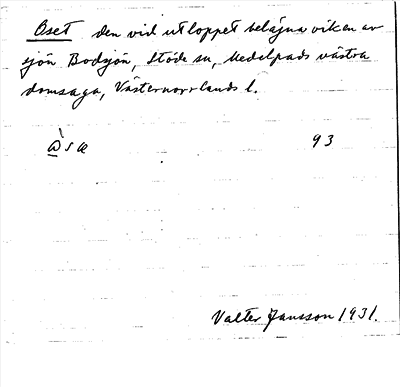 Oset den vid utloppet belägna viken av
sjön Bodsjön, Stöde sn, Medelpads västra
domsaga, Västernorrlands l.
93
Valter Jansson 1931.